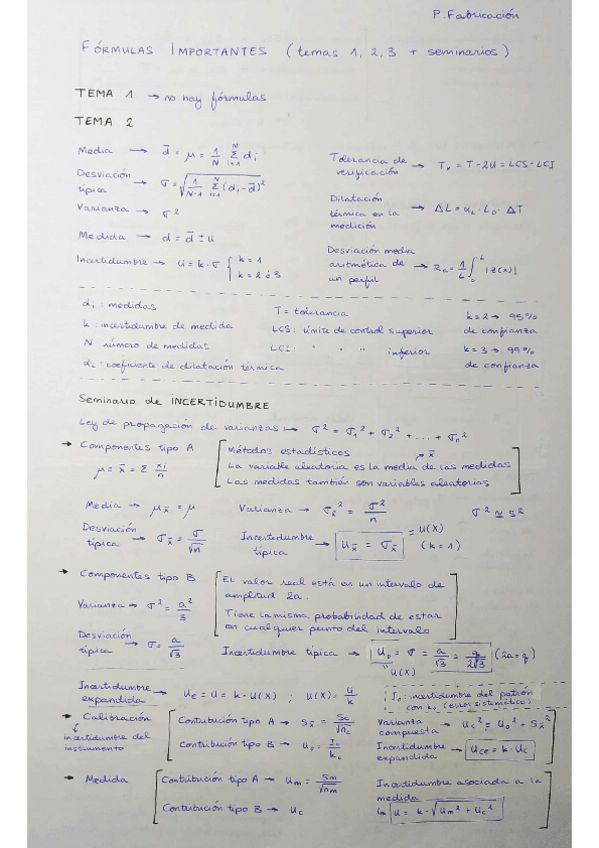 P. Fabricación
FÓRMULAS IMPORTANTES (temas 1, 2, 3 + seminarios)
TEMA 1 → no hay fórmulas
TEMA 2
Media → d̄ = μ = 1/N Σ(i=1, N) d_i
Desviación típica → σ = √(1/(N-1) Σ(i=1, N) (d_i - d̄)²)
Varianza → σ²
Medida → d = d̄ ± u
Incertidumbre → u = k · σ { k = 1
k = 2 ó 3
Tolerancia de verificación → T_v = T - 2U = LCS - LCI
Dilatación térmica en la medición → ΔL = α_L · L_0 · ΔT
Desviación media aritmética de un perfil → R_a = 1/L ∫(0, L) |z(x)|
d_i : medidas
T = tolerancia
k = 2 → 95%
k : incertidumbre de medida
LCS : límite de control superior
de confianza
N número de medidas
LCI : " " " inferior
k = 3 → 99%
α_L : coeficiente de dilatación térmica
de confianza
Seminario de INCERTIDUMBRE
Ley de propagación de varianzas → σ² = σ_1² + σ_2² + ... + σ_n²
→ Componentes tipo A
μ = x̄ = Σ x_i/n
Métodos estadísticos
x̄
La variable aleatoria es la media de las medidas
Las medidas también son variables aleatorias
Media → μ_x̄ = μ
Varianza → σ_x̄² = σ²/n
σ² ≃ s²
Desviación típica → σ_x̄ = σ/√n
Incertidumbre típica → u_x̄ = σ_x̄ = u(x) (k = 1)
→ Componentes tipo B
El valor real está en un intervalo de
amplitud 2a.
Tiene la misma probabilidad de estar
en cualquier punto del intervalo
Varianza → σ² = a²/3
Desviación típica → σ = a/√3
Incertidumbre típica → u_0 = σ = a/√3 = q/2√3 (2a = q)
u(x)
Incertidumbre expandida → U_C = U = k · u(x) ; u(x) = U/k
I_0 : incertidumbre del patrón
con k_0 (error sistemático)
→ Calibración
incertidumbre del
instrumento
Contribución tipo A → S_x̄ = S_c/√n_c
Contribución tipo B → u_0 = I_0/k_0
Varianza compuesta → u_c² = u_0² + S_x̄²
Incertidumbre expandida → U_CE = k · u_c
→ Medida
Contribución tipo A → u_m = S_m/√n_m
Contribución tipo B → u_c
Incertidumbre asociada a la
medida
↳ U = k · √(u_m² + u_c²)